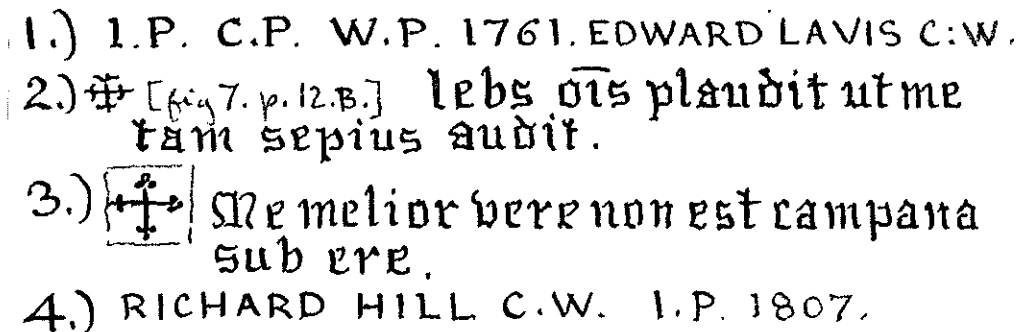 1.) I.P. C.P. W.P. 1761. EDWARD LAVIS C:W.
2.) [fig 7. p. 12. B.] lebs oīs plaudit ut me
tam sepius audit.
3.) Me melior vere non est campana
sub ere.
4.) RICHARD HILL C.W. I.P. 1807.